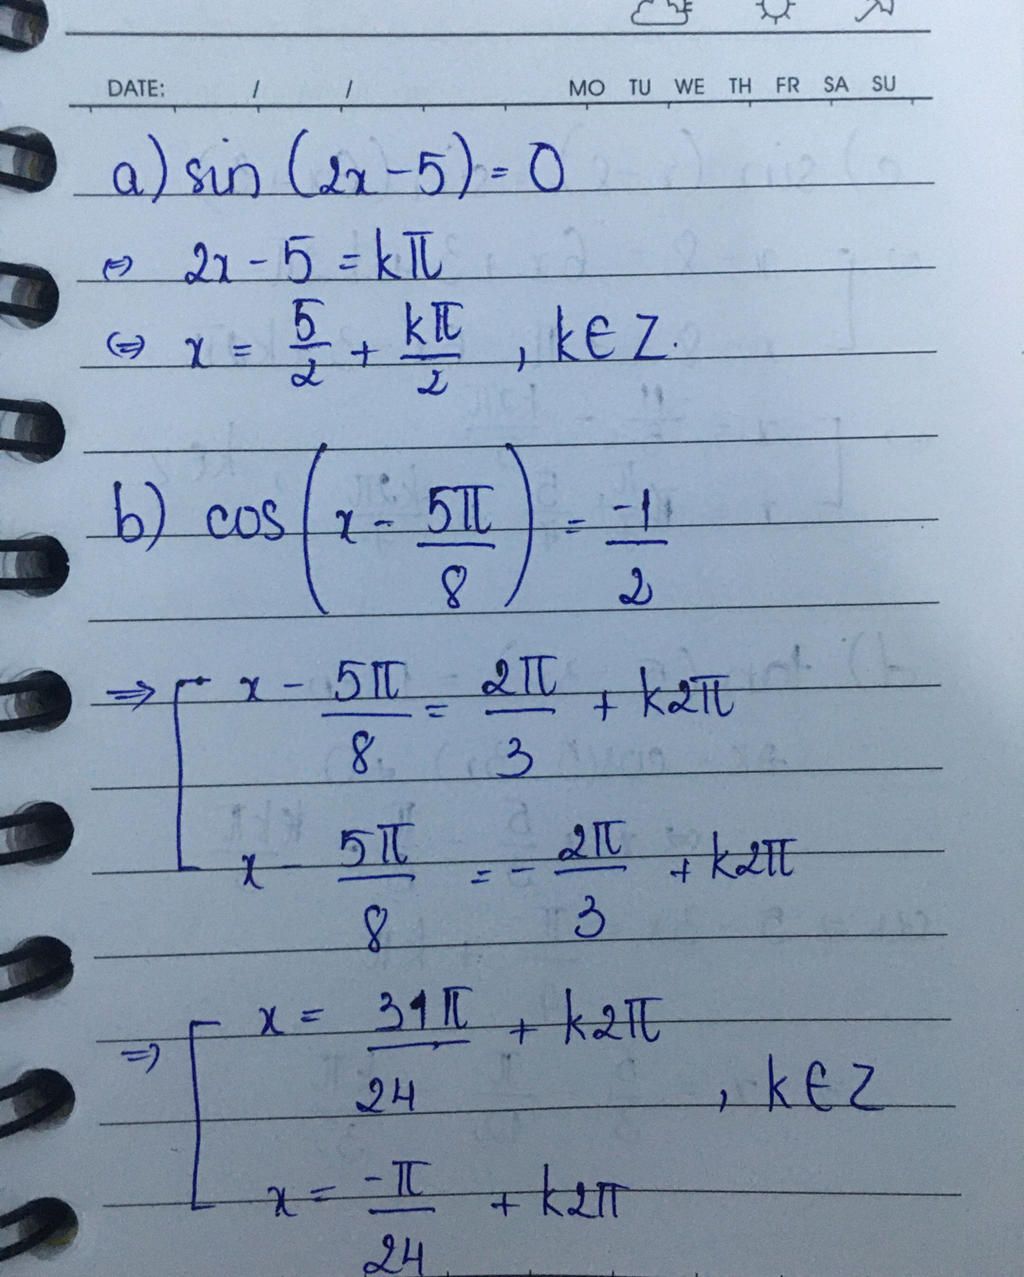 DATE: / / MO TU WE TH FR SA SU
a) sin (2x - 5) = 0
⇔ 2x - 5 = kπ
⇔ x = 5/2 + kπ/2 , k ∈ Z.
b) cos (x - 5π/8) = -1/2
⇒ [ x - 5π/8 = 2π/3 + k2π
x - 5π/8 = - 2π/3 + k2π
⇒ [ x = 31π/24 + k2π
, k ∈ Z
x = -π/24 + k2π